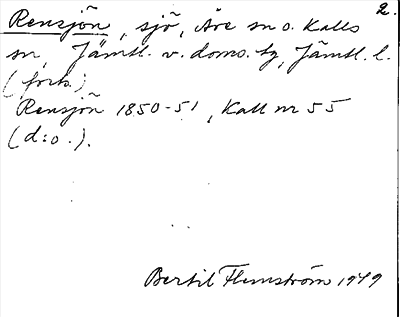 2.
Rensjön, sjö, Åre sn o. Kalls
sn, Jämtl. v. doms. tg, Jämtl. l.
(forts.)
Rensjön 1850-51, Kall nr 55
(d:o.).
Bertil Flemström 1949